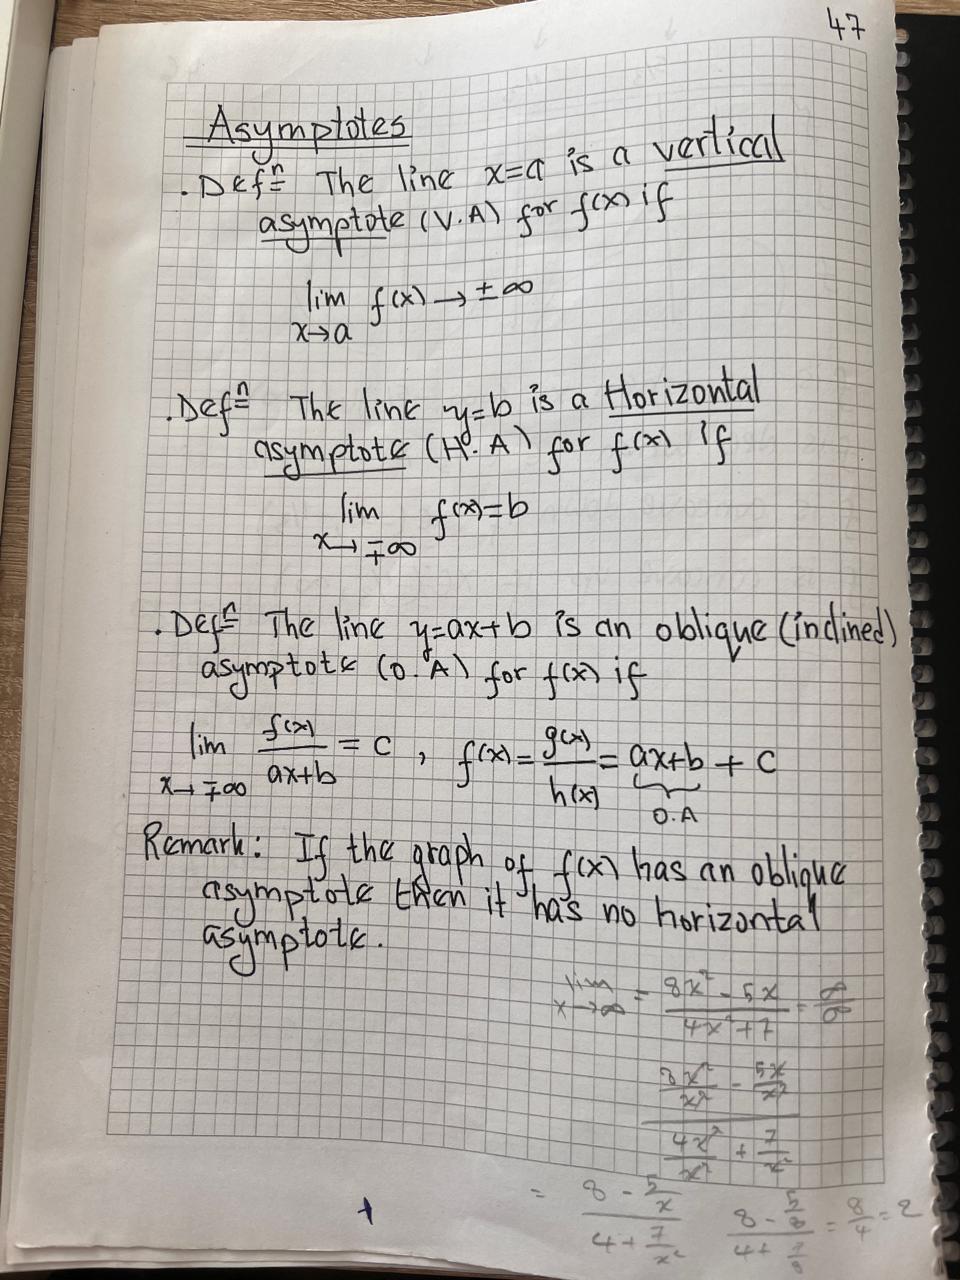 47
Asymptotes
. Defⁿ The line x=a is a vertical
asymptote (V.A) for f(x) if
lim f(x) → ±∞
x→a
. Defⁿ The line y=b is a Horizontal
asymptote (H.A) for f(x) if
lim f(x)=b
x→∓∞
. Defⁿ The line y=ax+b is an oblique (inclined)
asymptote (O.A) for f(x) if
lim f(x)/(ax+b) = c , f(x) = g(x)/h(x) = ax+b + c
x→∓∞ O.A
Remark: If the graph of f(x) has an oblique
asymptote then it has no horizontal
asymptote.
lim = (8x² - 5x)/(4x²+7) = ∞/∞
x→∞
8x²/x² - 5x/x²
4x²/x² + 7/x²
= (8 - 5/x)/(4 + 7/x²) (8 - 5/∞)/(4 + 7/∞) = 8/4 = 2